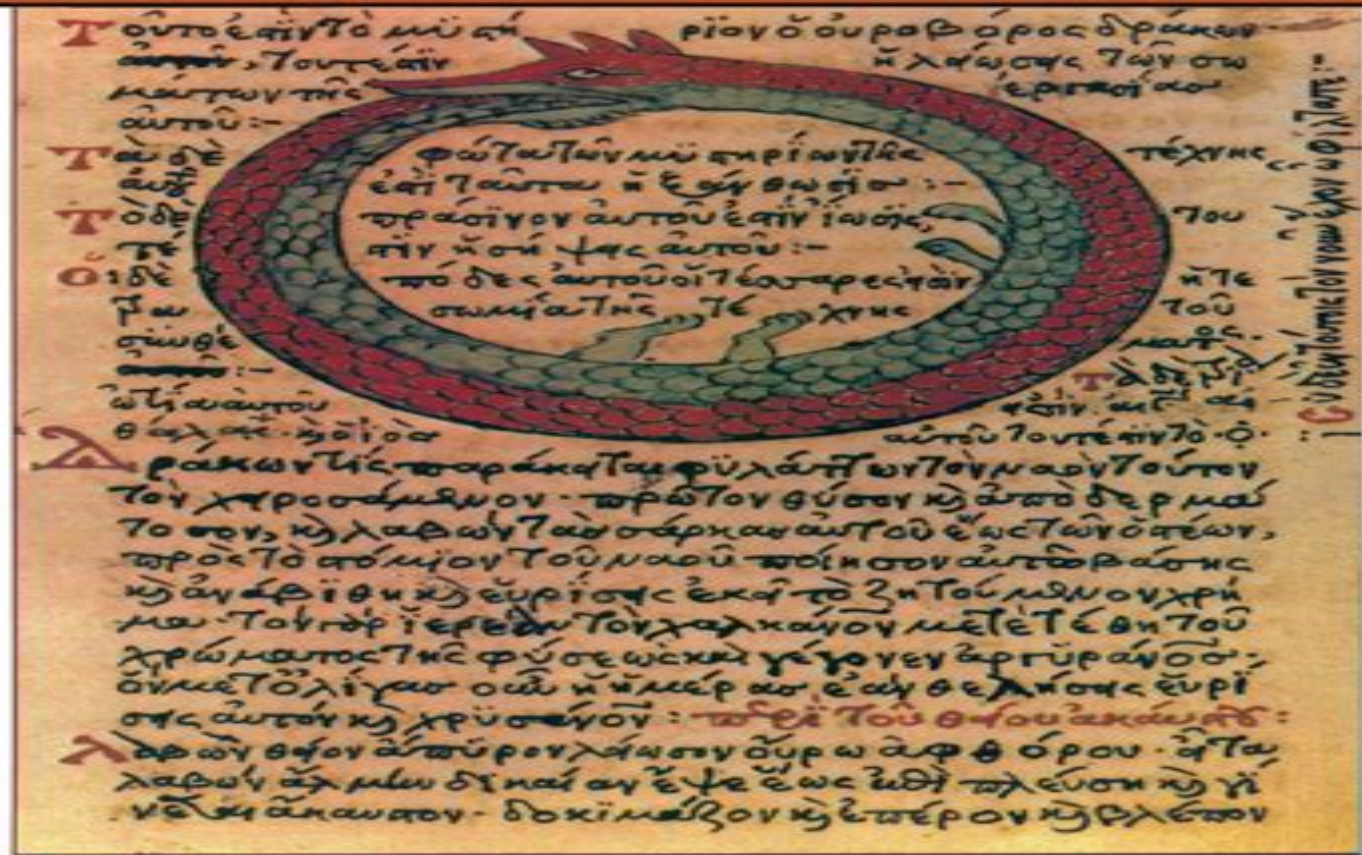 Τοῦτο ἐστὶν τὸ μυστήριον ὁ οὐροβόρος δράκων·
τουτέστιν ἡ λείωσης τῶν σω
μάτων τῆς ἐργασίας
αὐτοῦ :-
Τὰ δὲ φῶτα τῶν μυστηρίων τῆς τέχνης
ἐστὶ ταῦτα ἡ ξάνθωσις :-
Τὸ δὲ πράσινον αὐτοῦ ἐστὶν ἴωσις, του
τὶν ἡ σήψης αὐτοῦ :-
Οἱ δὲ πόδες αὐτοῦ οἱ τέσσαρές εἰσὶν ἡ τε
τρα σωμία τῆς τέχνης τοῦ
συνθέματος·
τὰ δὲ τρία
ὠτία αὐτοῦ εἰσὶν αἱ
θάλαι· καὶ ὁ ἰὸς αὐτοῦ τουτέστιν τὸ
Δράκων τίς παράκειται φυλάττων τὸν ναὸν τοῦτον
τὸν χειροσάμενον· πρῶτον θύσον καὶ ἀποδερμά
τοσον, καὶ λαβὼν τὰς σάρκας αὐτοῦ ἕως τῶν ὀστέων,
πρὸς τὸ στόμιον τοῦ ναοῦ ποίησον αὐτῷ βάσης
καὶ ἀνάβιθη καὶ εὑρίσης ἐκεῖ τὸ ζητούμενον χρή
μα· τὸν γὰρ ἱερέαν τὸν χαλκάνον μετετέθη τοῦ
χρώματος τῆς φύσεως καὶ γέγονεν ἀργυράνος·
ὃν μετ' ὀλίγας οὖν ἡμέρας ἐὰν θελήσης εὑρί
σης αὐτὸν καὶ χρυσάνον : περὶ τοῦ θείου ἀκαύστου :
Λαβὼν θεῖον ἄπυρον λείωσον οὔρω ἀφθόρου· εἶτα
λαβὼν ἅλμιν δικαίαν ἕψε ἕως ἐπιπλεύση καὶ γί
νεται ἄκαυστον· δοκίμαζον καὶ ἔπερον καὶ βλέπον